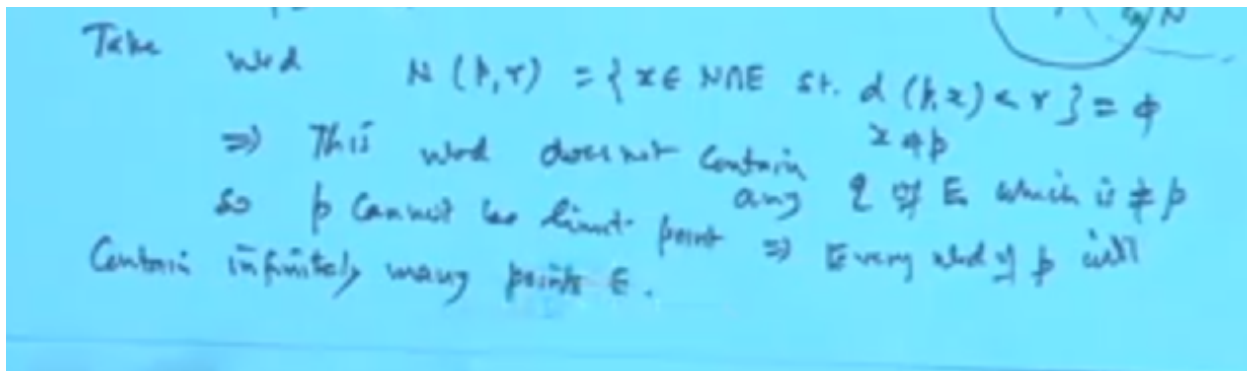 Take nbd N (p, r) = { x ∈ N∩E st. d (p, x) < r } = ϕ
x ≠ p
⇒ This nbd does not contain any q of E which is ≠ p
so p cannot be limit point ⇒ Every nbd of p will
Contain infinitely many points E.